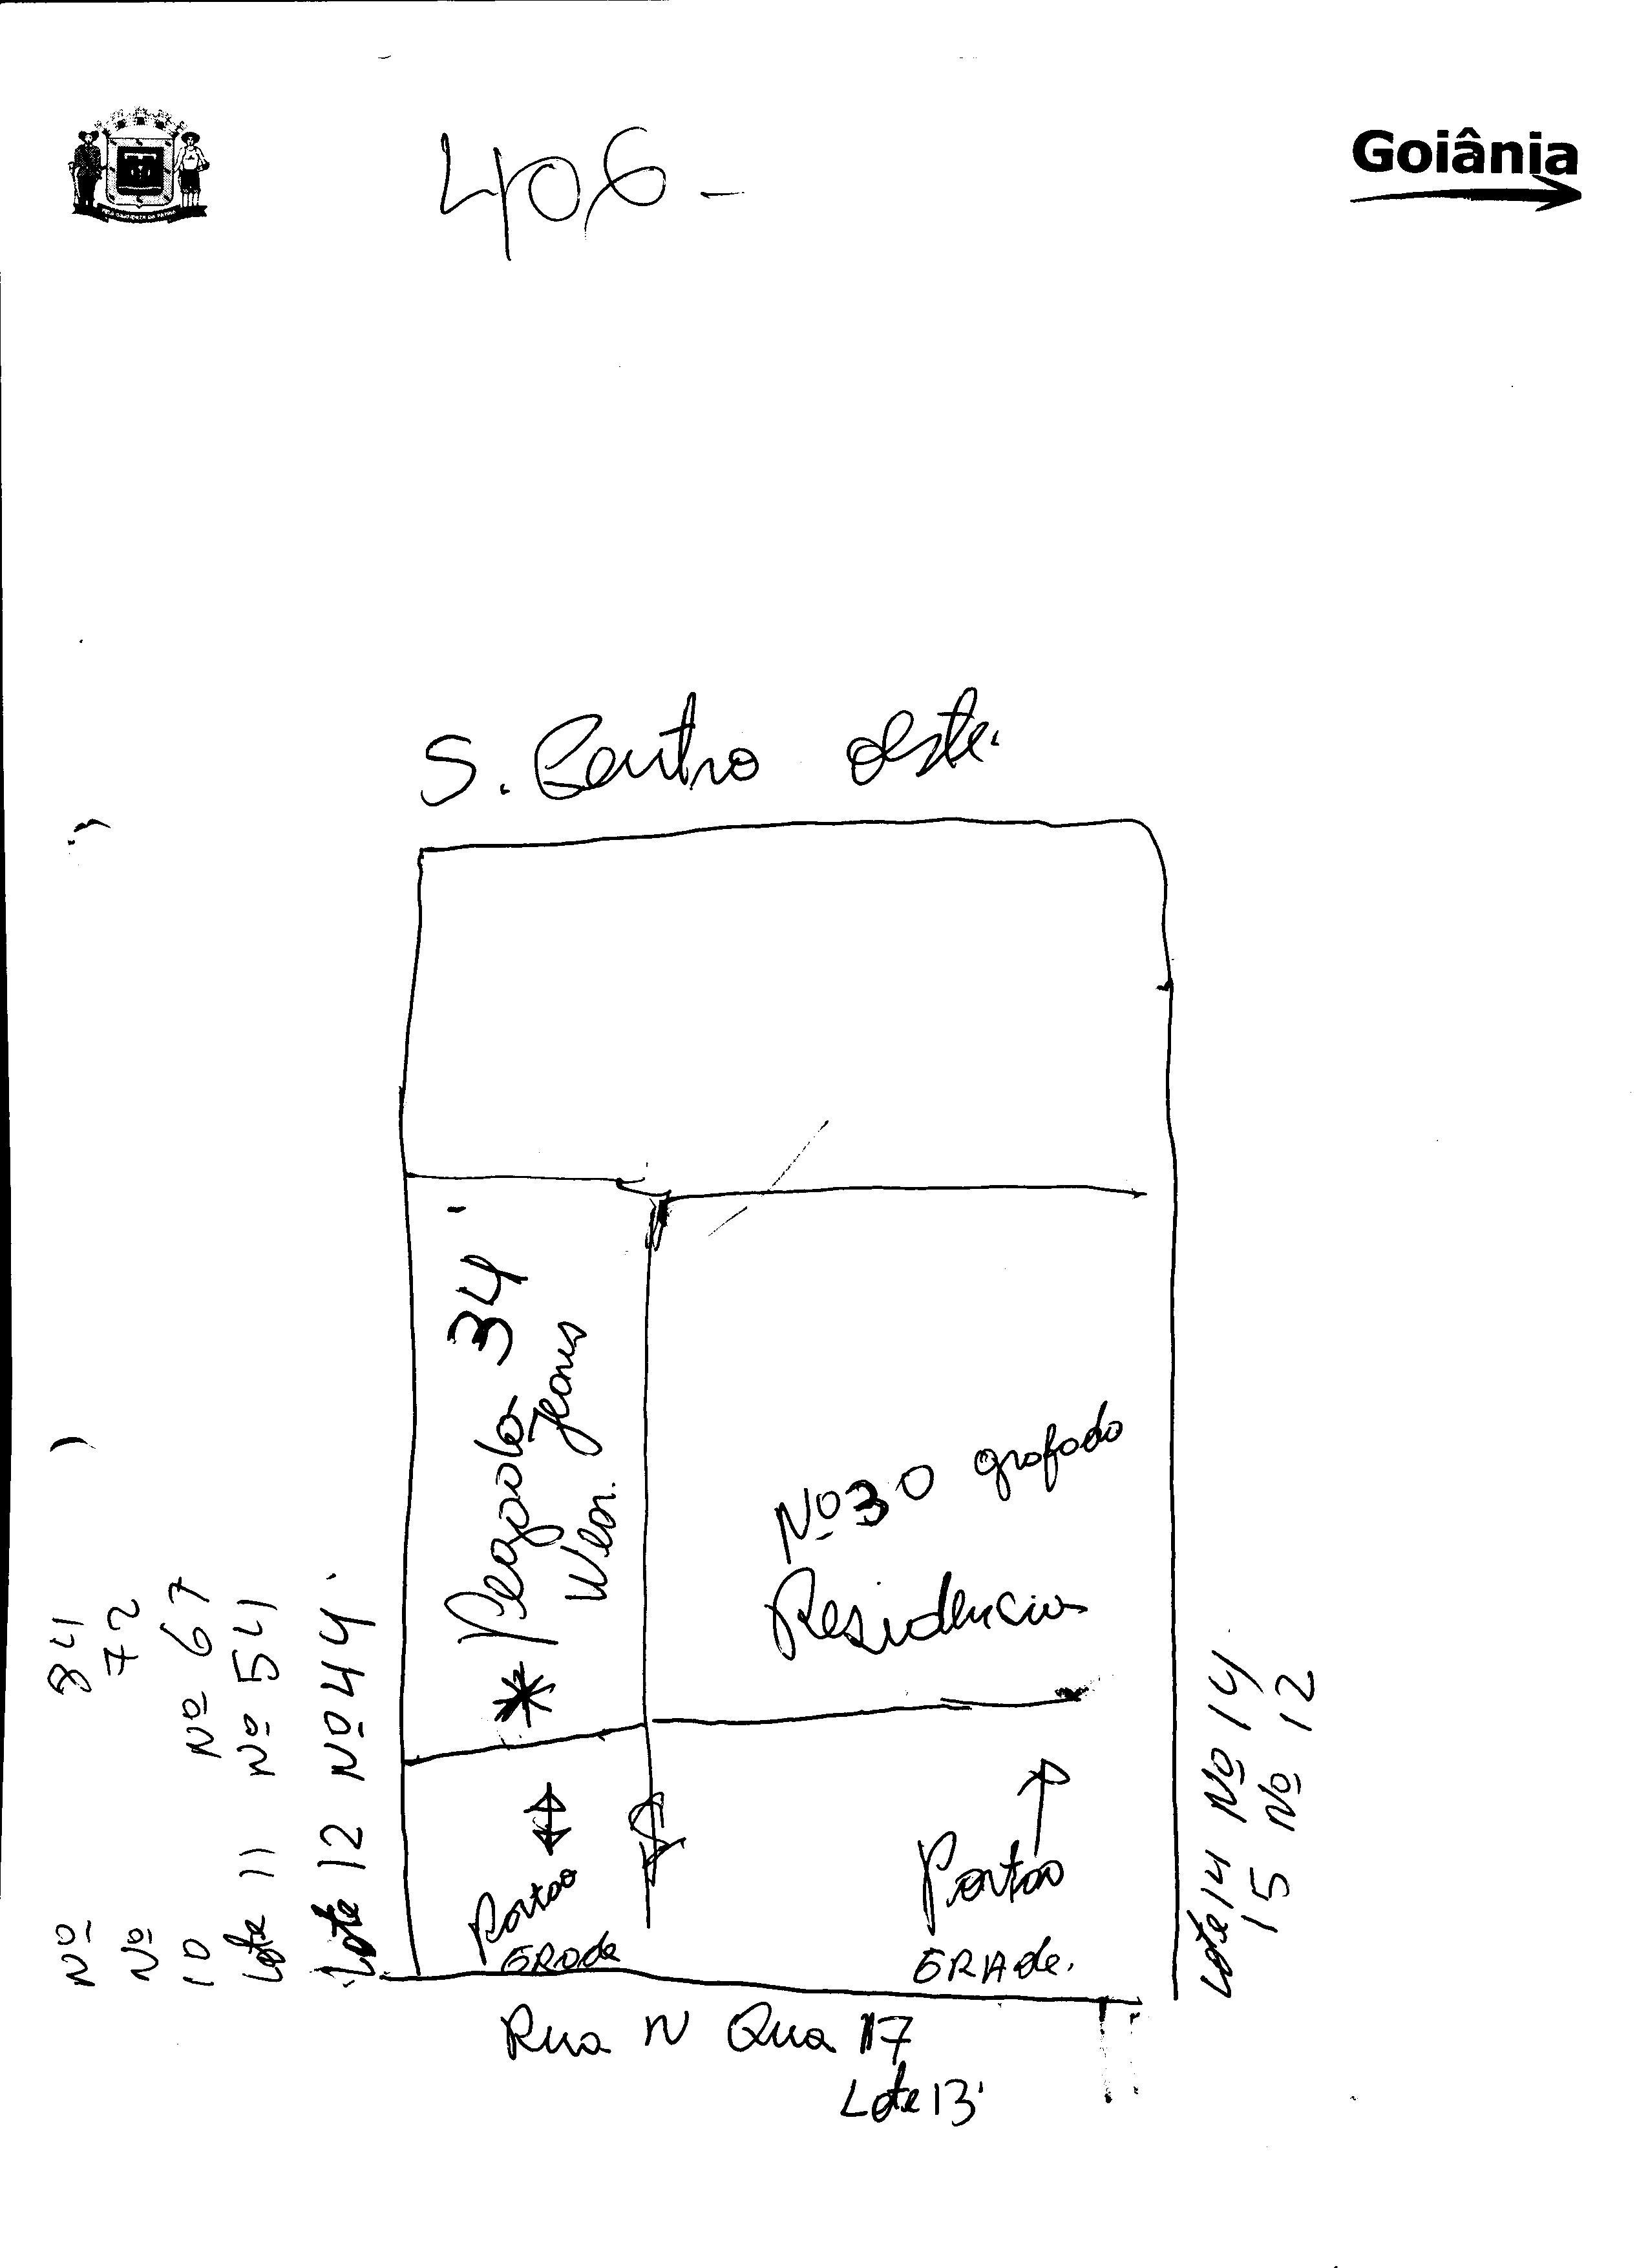 Goiânia
406-
S. Centro Oeste.
34
Jeans
Wear.
Nº 30 grafado
Residencia
Portão
GRAde
Portão
GRAde.
Nº 84
Nº 72
10 Nº 67
Lote 11 Nº 54
Lote 12 Nº 44
Lote 14 Nº 14
15 Nº 12
Rua N Qua 117
Lote 13